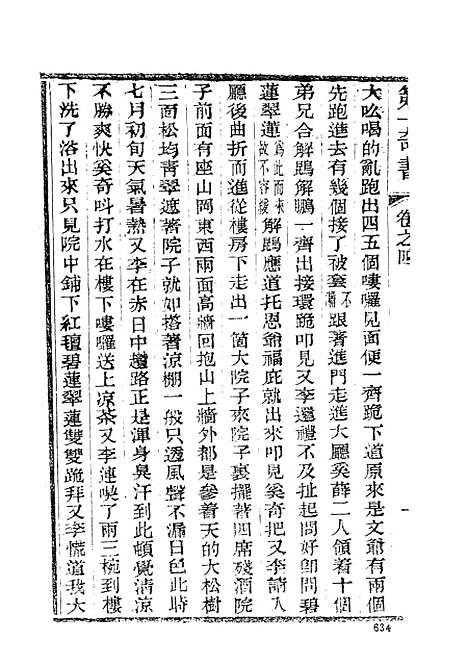 第一奇書
卷之四
一
大吆喝的亂跑出四五個嘍囉見面便一齊跪下道原來是文爺有兩個
先跑進去有幾個接了被套不嘴跟著進門走進大廳奚薛二人領着十個
弟兄合解鵾解鵬一齊出接環跪叩見又李還禮不及扯起問好卽問碧
蓮翠蓮爲此而來故不容緩解鵾應道托恩爺福庇就出來叩見奚奇把又李請入
廳後曲折而進從樓房下走出一箇大院子來院子裏擺著四席殘酒院
子前面有座山岡東西兩面高牆回抱山上牆外都是參着天的大松樹
三面松均靑翠遮著院子就如搭著涼棚一般只透風聲不漏日色此時
七月初旬天氣暑熱又李在赤日中趲路正是渾身臭汗到此頓覺清涼
不勝爽快奚奇呌打水在樓下嘍囉送上凉茶又李連喫了兩三椀到樓
下洗了浴出來只見院中鋪下紅氊碧蓮翠蓮雙雙跪拜又李慌道我大
634